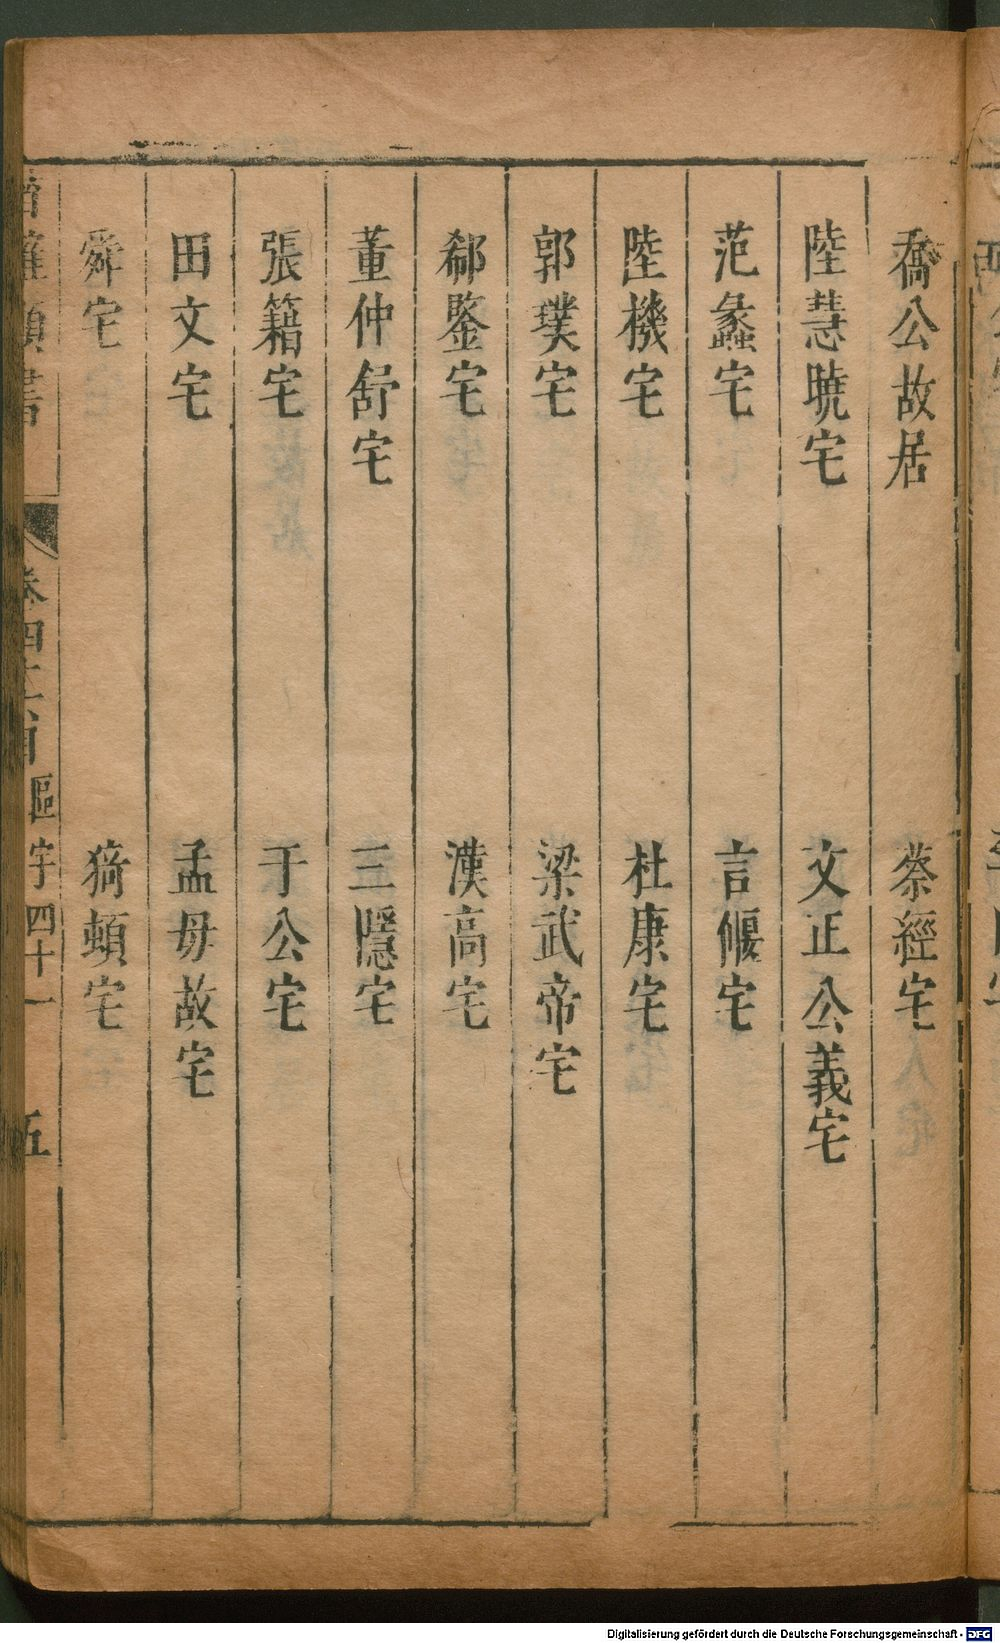 喬公故居
蔡經宅
陸慧曉宅
文正公義宅
范蠡宅
言偃宅
陸機宅
杜康宅
郭璞宅
梁武帝宅
郗鑒宅
漢高宅
董仲舒宅
三隱宅
張籍宅
于公宅
田文宅
孟母故宅
舜宅
猗頓宅
卷四十一
區宇四十一
五
Digitalisierung gefördert durch die Deutsche Forschungsgemeinschaft - DFG